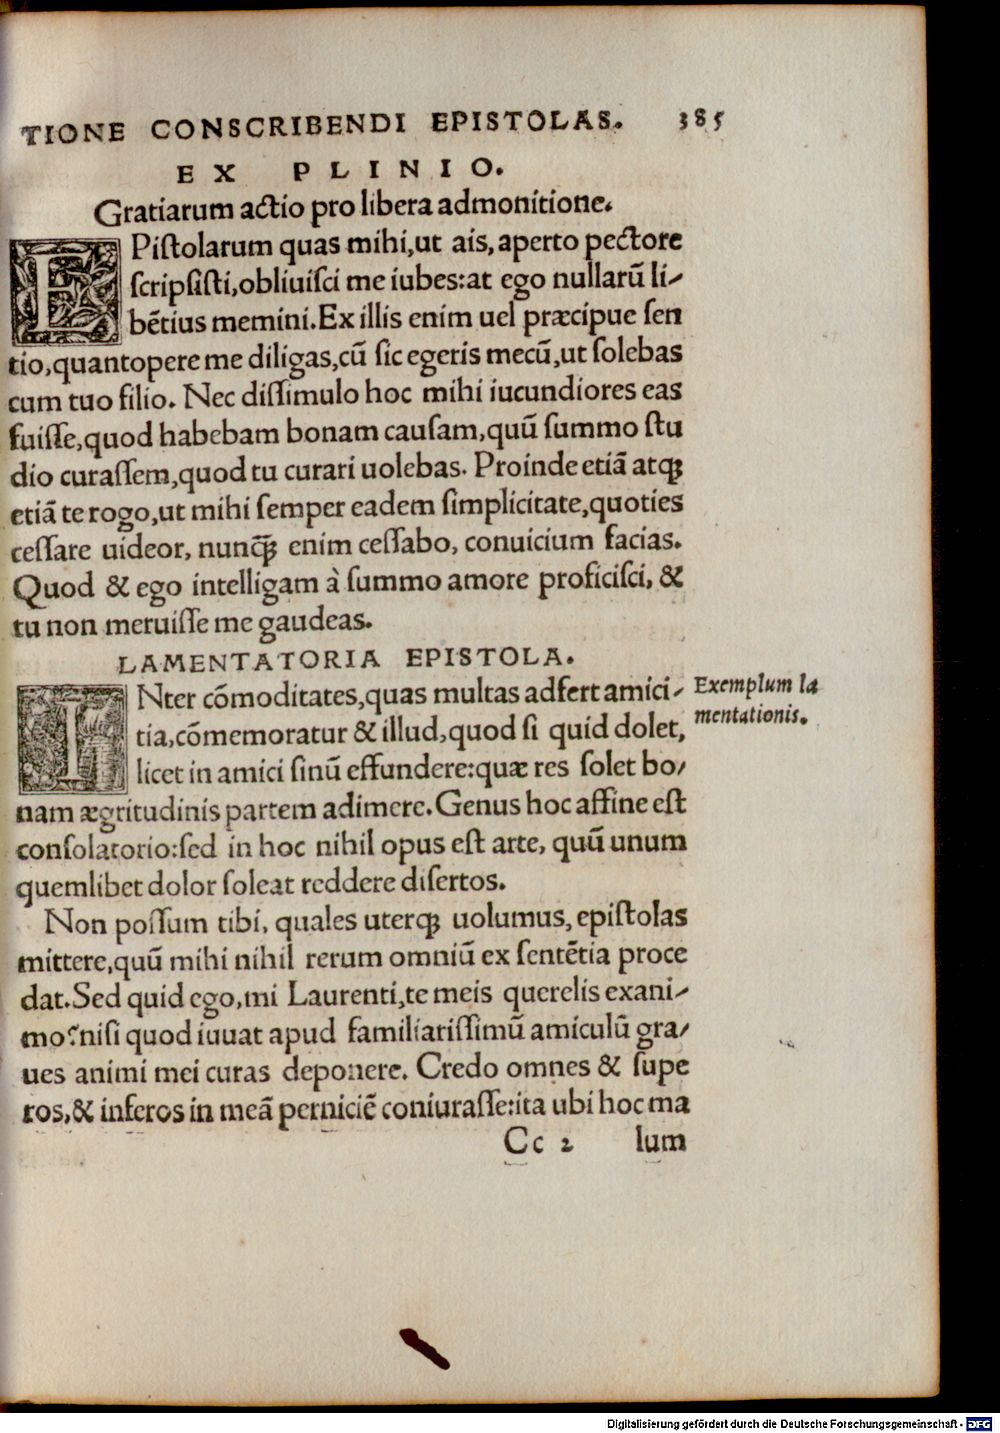 TIONE CONSCRIBENDI EPISTOLAS. 385
EX PLINIO.
Gratiarum actio pro libera admonitione.
EPiſtolarum quas mihi,ut ais,aperto pectore
ſcripſiſti,obliuiſci me iubes:at ego nullarū li-
bētius memini.Ex illis enim uel præcipue ſen
tio,quantopere me diligas,cū ſic egeris mecū,ut ſolebas
cum tuo filio. Nec diſſimulo hoc mihi iucundiores eas
fuiſſe,quod habebam bonam cauſam,quū ſummo ſtu
dio curaſſem,quod tu curari uolebas. Proinde etiā atqꝫ
etiā te rogo,ut mihi ſemper eadem ſimplicitate,quoties
ceſſare uideor, nunꝗ̃ enim ceſſabo, conuicium facias.
Quod & ego intelligam à ſummo amore proficiſci, &
tu non meruiſſe me gaudeas.
LAMENTATORIA EPISTOLA.
INter cōmoditates,quas multas adfert amici-
tia,cōmemoratur & illud,quod ſi quid dolet,
licet in amici ſinū effundere:quæ res ſolet bo-
nam ægritudinis partem adimere.Genus hoc affine eſt
conſolatorio:ſed in hoc nihil opus eſt arte, quū unum
quemlibet dolor ſoleat reddere diſertos.
Exemplum la
mentationis.
Non poſſum tibi, quales uterqꝫ uolumus, epiſtolas
mittere,quū mihi nihil rerum omniū ex ſentētia proce
dat.Sed quid ego,mi Laurenti,te meis querelis exani-
mo?niſi quod iuuat apud familiariſſimū amiculū gra-
ues animi mei curas deponere. Credo omnes & ſupe
ros,& inferos in meā perniciē coniuraſſe:ita ubi hoc ma
Cc 2 lum
Digitalisierung gefördert durch die Deutsche Forschungsgemeinschaft - DFG